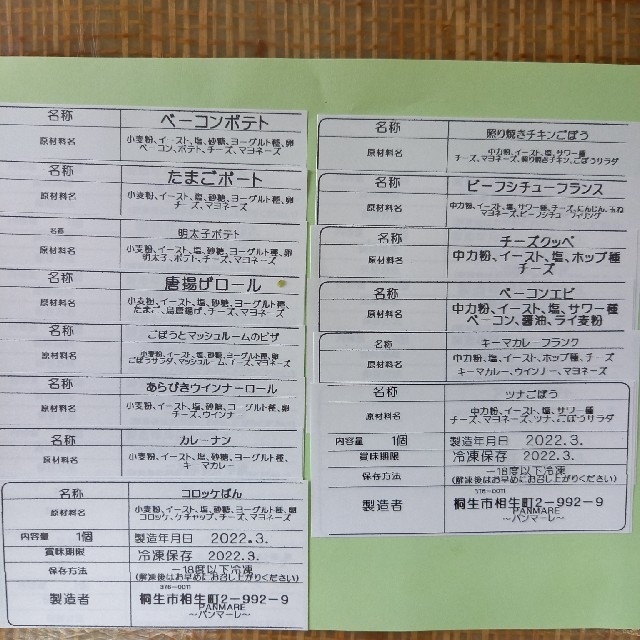 名称 ベーコンポテト
原材料名 小麦粉、イースト、塩、砂糖、ヨーグルト種、卵
ベーコン、ポテト、チーズ、マヨネーズ
名称 たまごボート
原材料名 小麦粉、イースト、塩、砂糖、ヨーグルト種、卵
チーズ、マヨネーズ
名称 明太子ポテト
原材料名 小麦粉、イースト、塩、砂糖、ヨーグルト種、卵
明太子、ポテト、チーズ、マヨネーズ
名称 唐揚げロール
原材料名 小麦粉、イースト、塩、砂糖、ヨーグルト種、
たまご、鳥唐揚げ、チーズ、マヨネーズ
名称 ごぼうとマッシュルームのピザ
原材料名 小麦粉、イースト、塩、砂糖、ヨーグルト種、卵
ごぼうサラダ、マッシュルーム、チーズ、マヨネーズ
名称 あらびきウインナーロール
原材料名 小麦粉、イースト、塩、砂糖、ヨーグルト種、卵
チーズ、ウインナー
名称 カレーナン
原材料名 小麦粉、イースト、塩、砂糖、ヨーグルト種、
キーマカレー
名称 コロッケぱん
原材料名 小麦粉、イースト、塩、砂糖、ヨーグルト種、卵
コロッケ、ケチャップ、チーズ、マヨネーズ
内容量 1個 製造年月日 2022.3.
賞味期限 冷凍保存 2022.3.
保存方法 －18度以下冷凍
(解凍後はお早めにお召し上がりください)
製造者 376-0011
桐生市相生町2－992－9
PANMARE
～パンマーレ～
名称 照り焼きチキンごぼう
原材料名 中力粉、イースト、塩、サワー種
チーズ、マヨネーズ、照り焼きチキン、ごぼうサラダ
名称 ビーフシチューフランス
原材料名 中力粉、イースト、塩、サワー種、チーズ、にんじん、玉ねぎ
マヨネーズ、ビーフシチューフィリング
名称 チーズクッペ
原材料名 中力粉、イースト、塩、ホップ種
チーズ
名称 ベーコンエピ
原材料名 中力粉、イースト、塩、サワー種
ベーコン、醤油、ライ麦粉
名称 キーマカレーフランク
原材料名 中力粉、塩、イースト、ホップ種、チーズ
キーマカレー、ウインナー、マヨネーズ
名称 ツナごぼう
原材料名 中力粉、イースト、塩、サワー種
チーズ、マヨネーズ、ツナ、ごぼうサラダ
内容量 1個 製造年月日 2022.3.
賞味期限 冷凍保存 2022.3.
保存方法 －18度以下冷凍
(解凍後はお早めにお召し上がりください)
製造者 376-0011
桐生市相生町2－992－9
PANMARE
～パンマーレ～